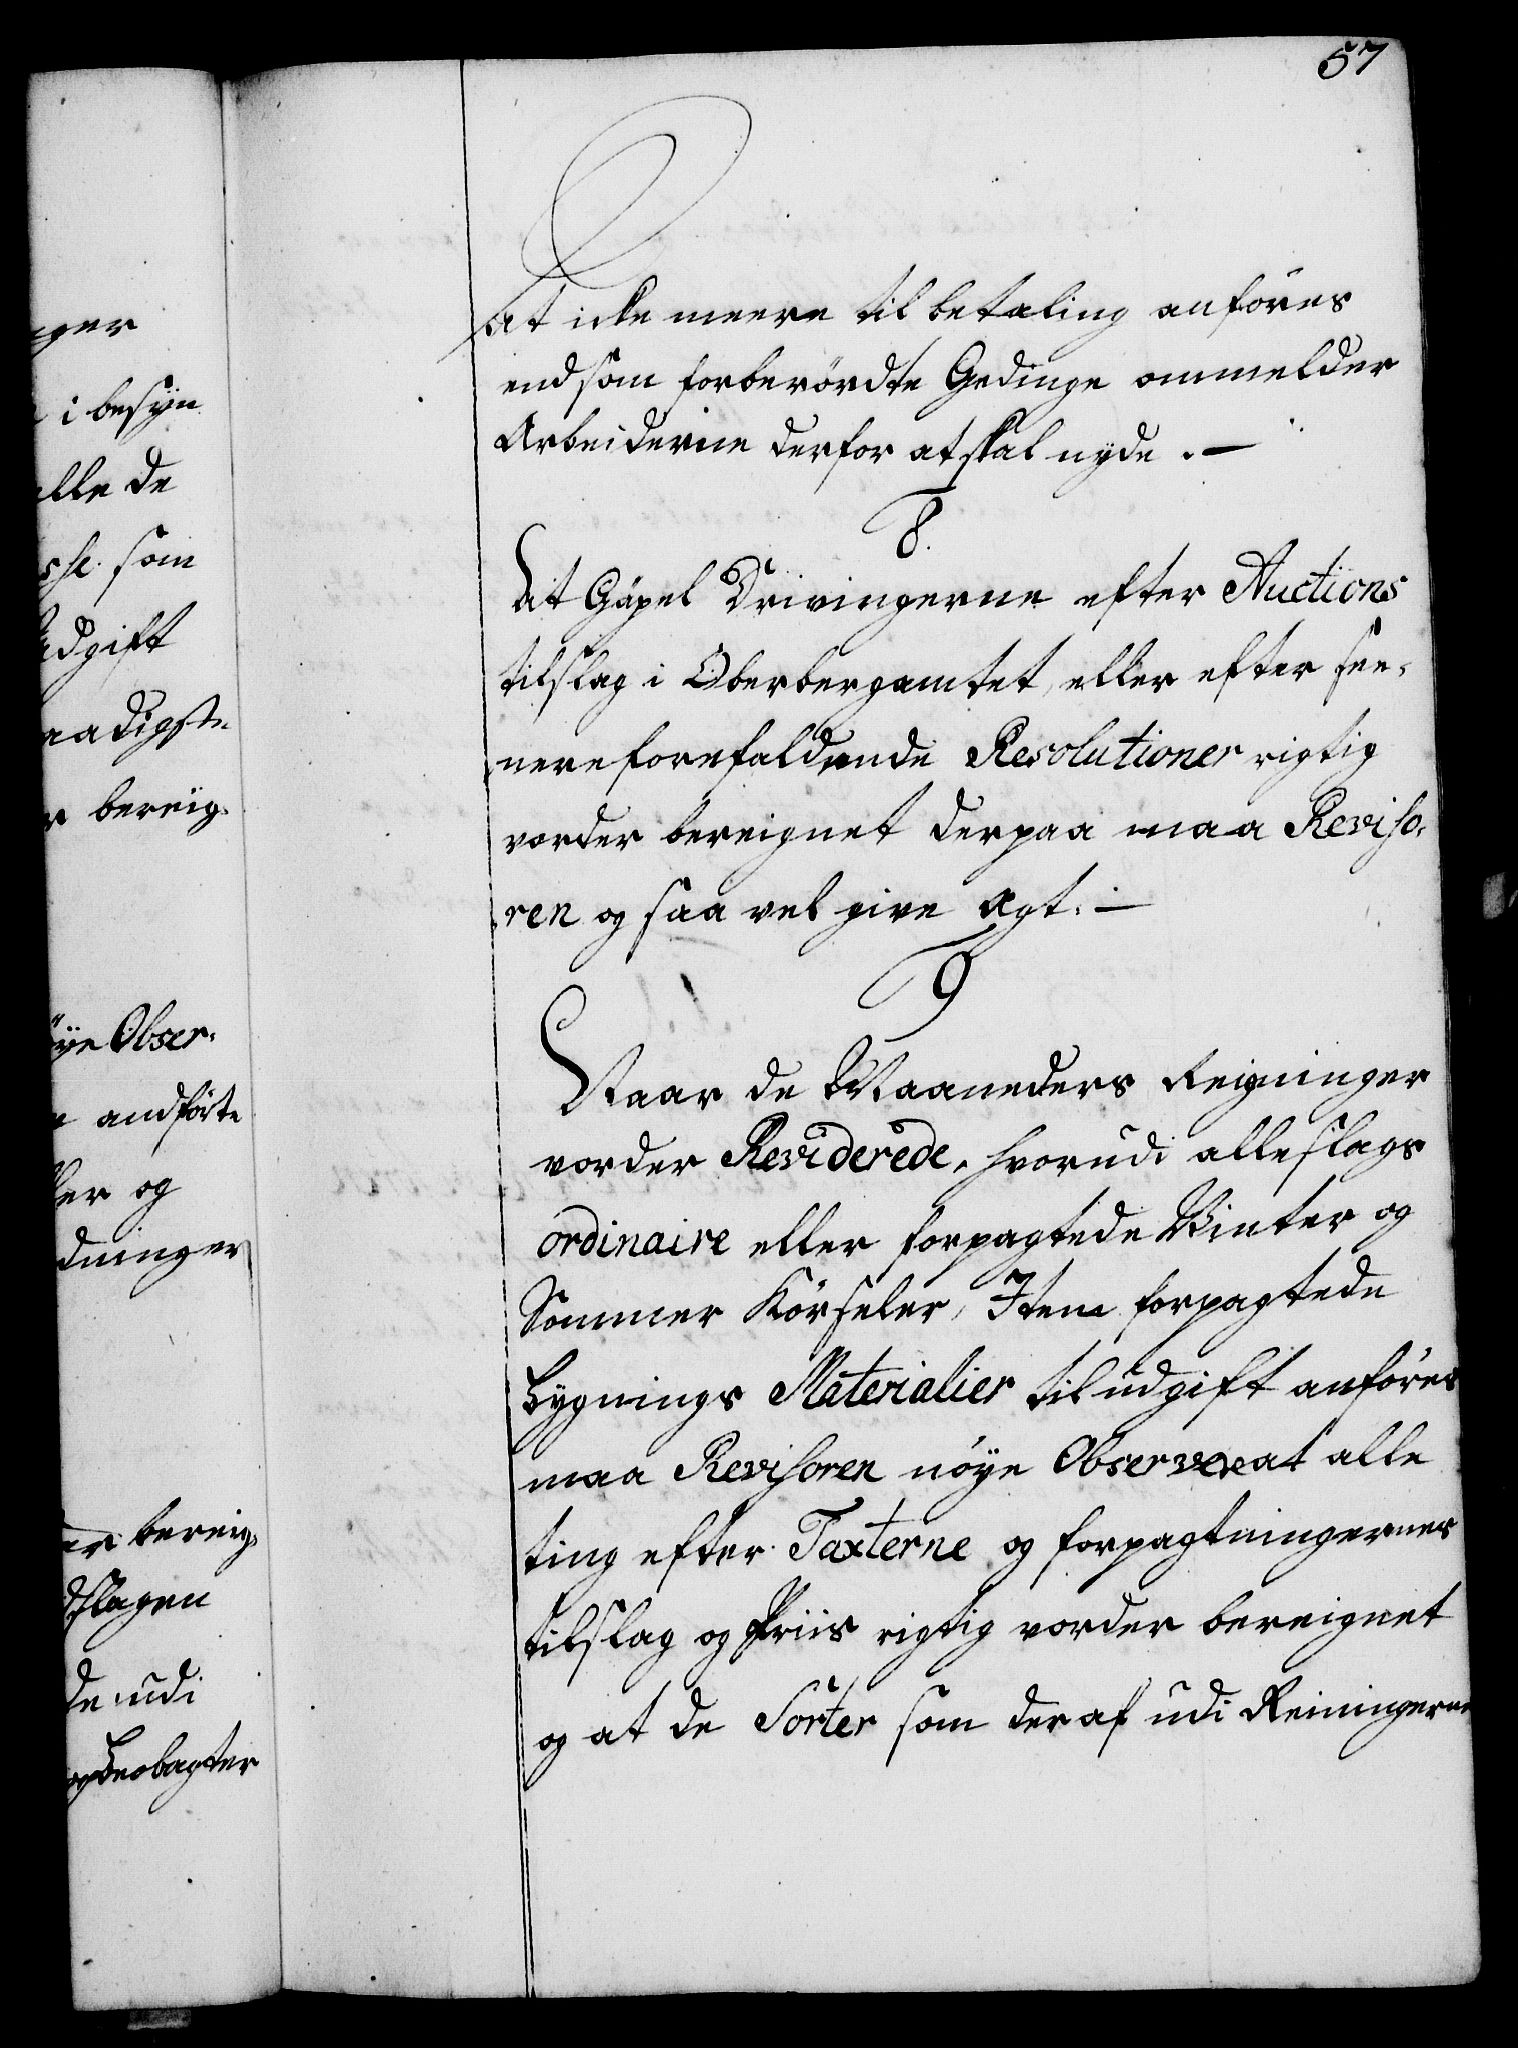 57
at icke meere til betaling anföres
end som forberördte Gedinge ommelder
Arbeiderne derfor at skal nyde. —
8.
At Gäpel Drivingerne efter Auctions
tilslag i Oberbergamtet, eller efter see-
nere forefaldende Resolutioner rigtig
vorder bereignet derpaa maa Reviso-
ren og saa vel give Agt. —
9
Naar de Maaneders Reigninger
vorder Reviderede, hvorudi alle slags
ordinaire eller forpagtede Vinter og
Sommer Körseler, Item forpagtede
Bygnings Materialier til udgift anföres
maa Revisoren nöye Observere at alle
ting efter Taxterne og forpagtningernes
tilslag og Priis rigtig vorder bereignet
og at de Sorter som deraf udi Reiningerne
nger
i besyn
alle de
som
udgift
aadigste
bereig-
öye Obser-
andförte
ler og
dninger
bereig-
dslagen
de udi
og beobagter